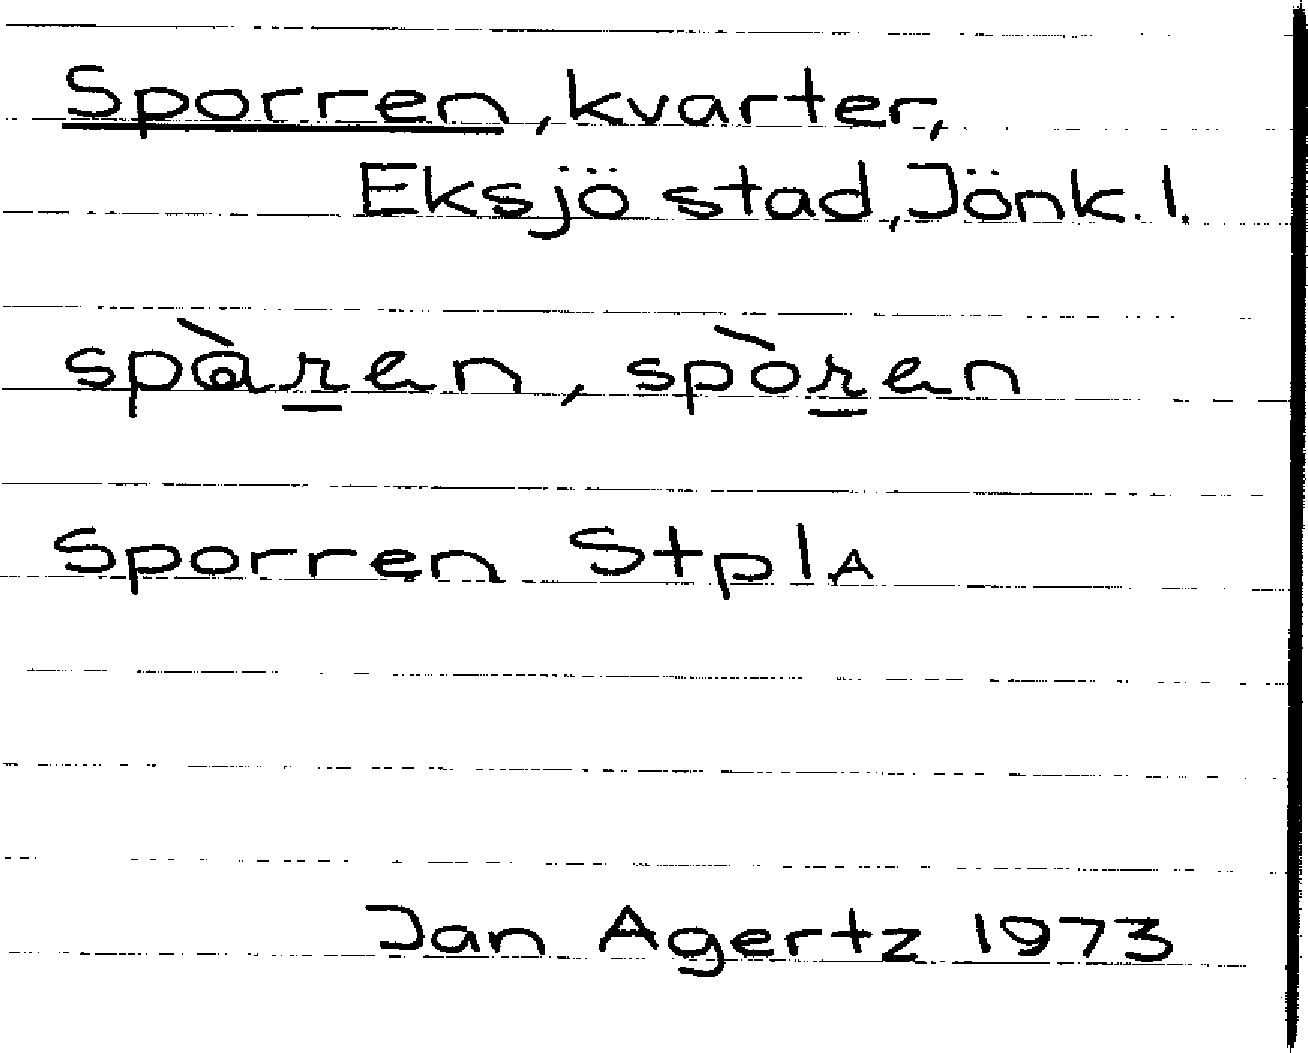 Sporren, kvarter,
Eksjö stad, Jönk. l.
spàren, spòren
Sporren StplA
Jan Agertz 1973